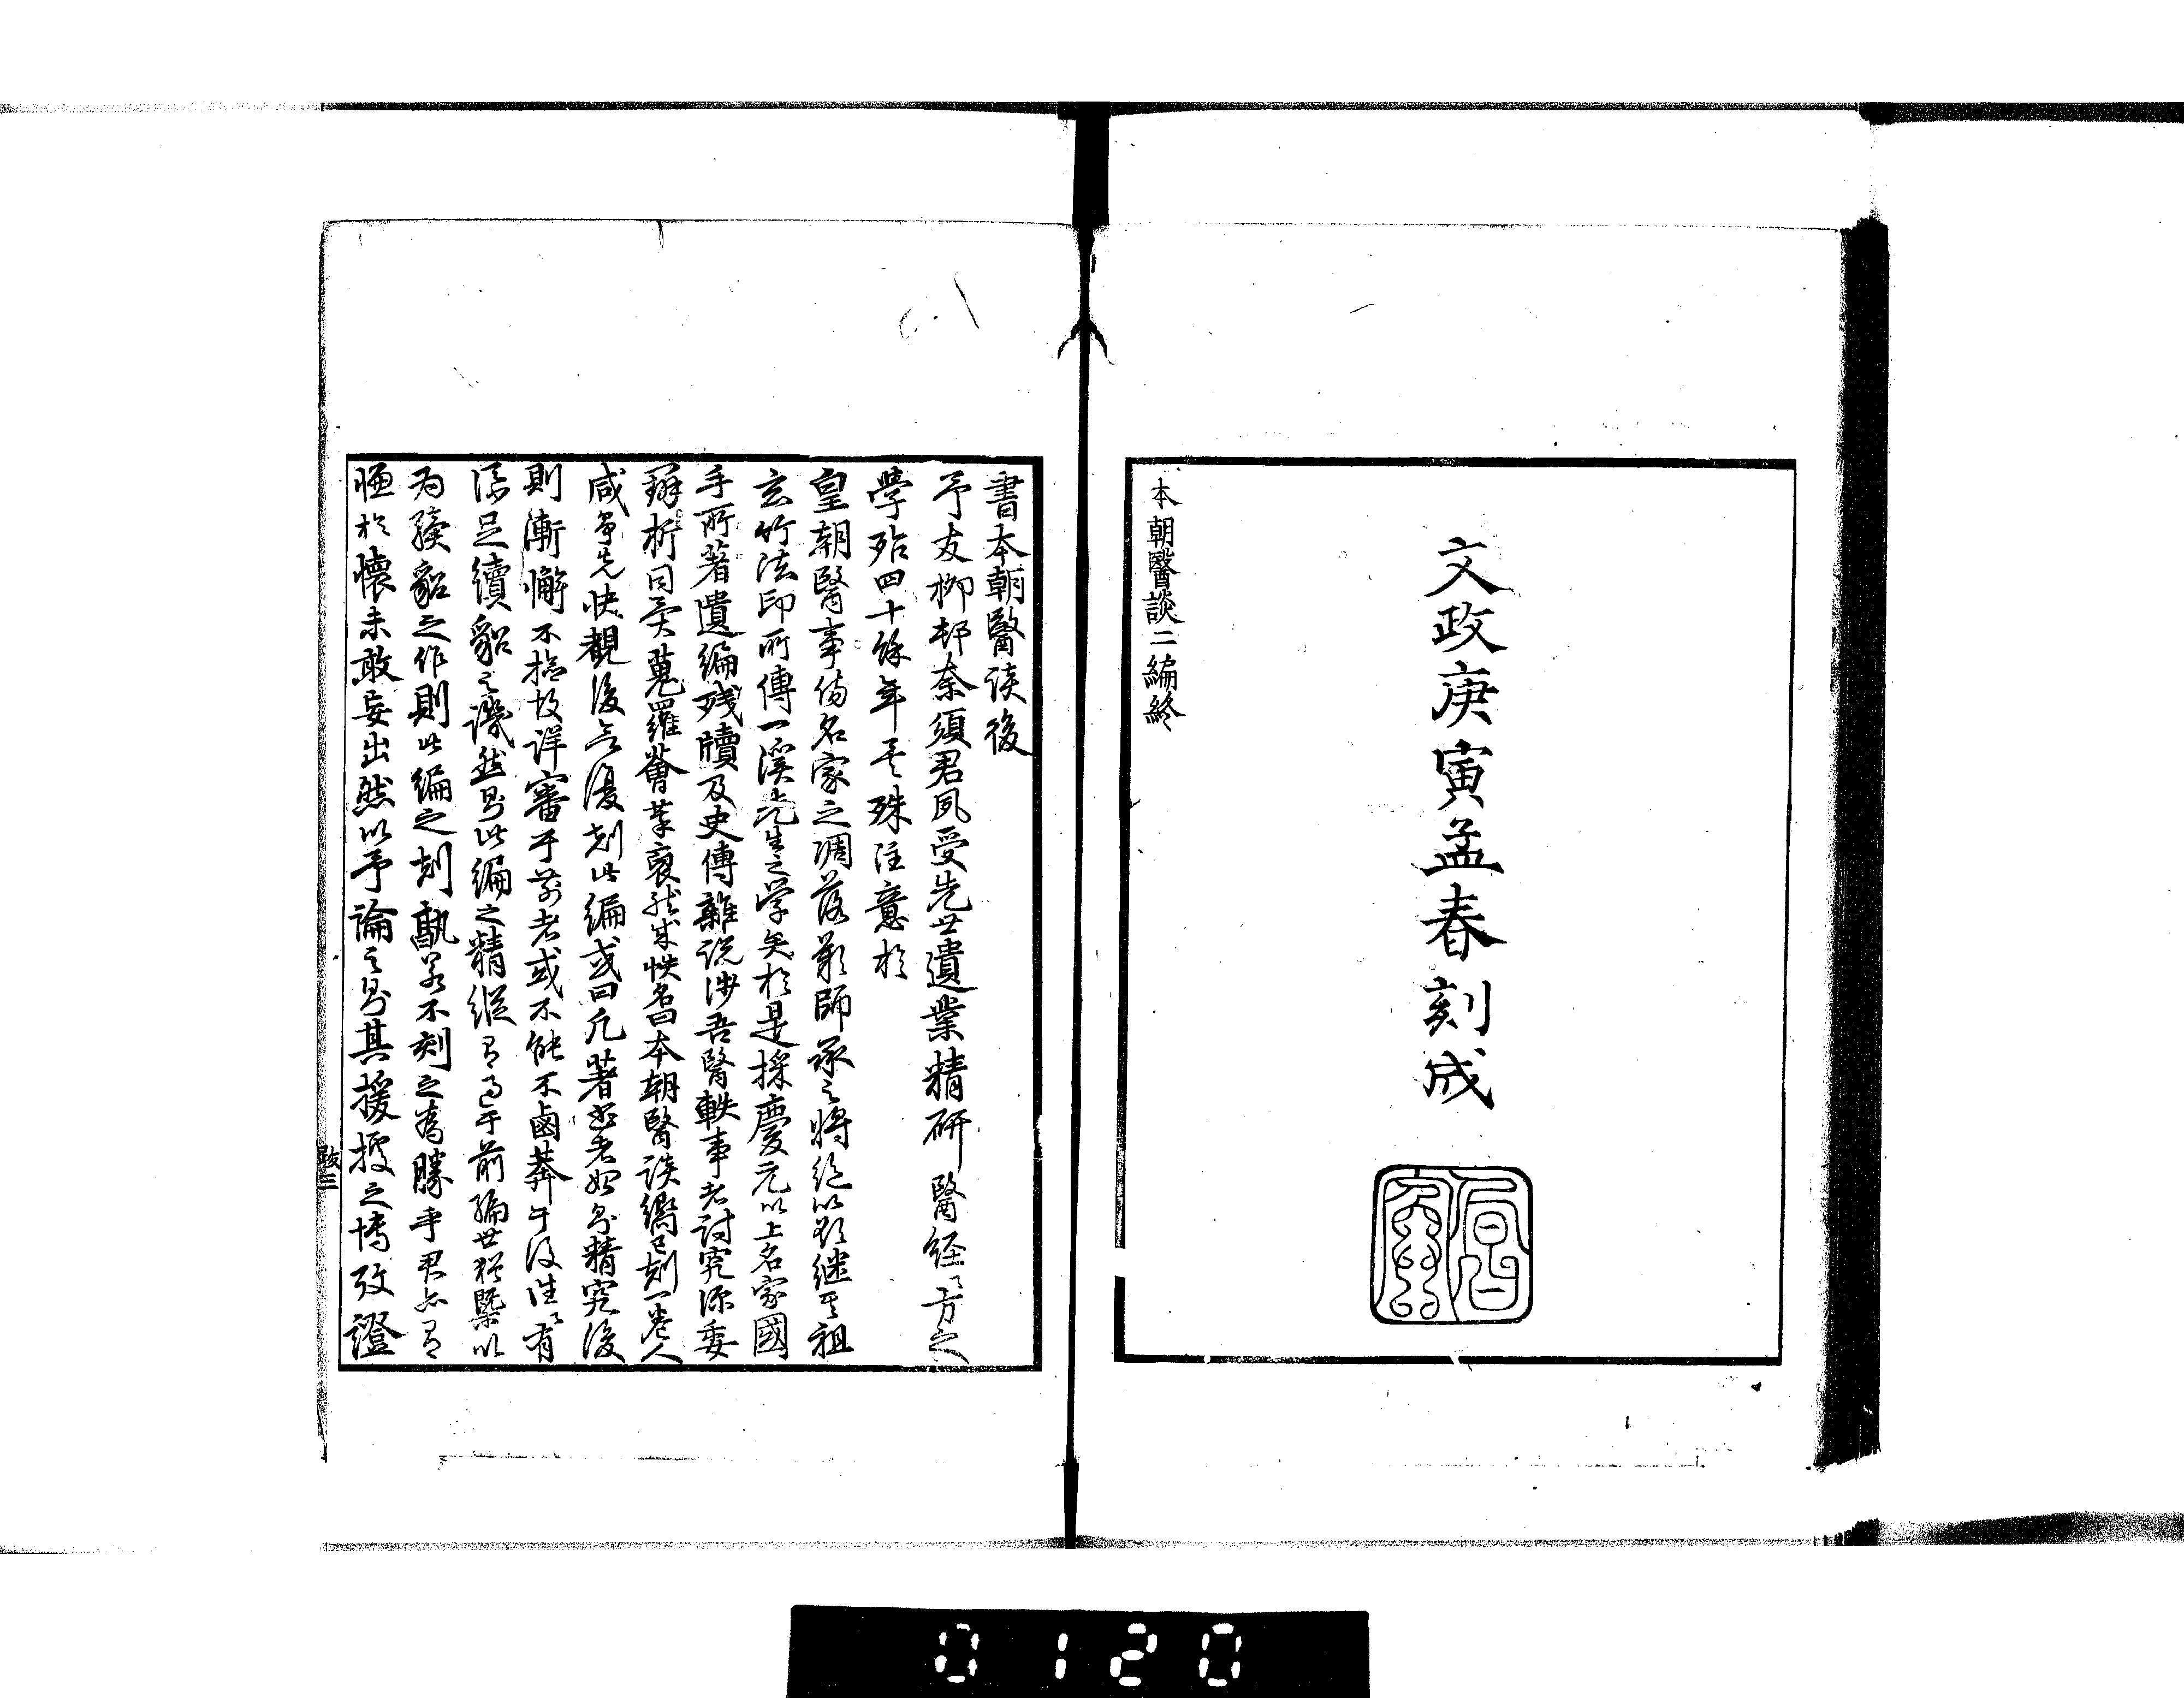 文政庚寅孟春刻成
本朝醫談二編終
書本朝醫談後
予友柳邨奈須君夙受先世遺業精研醫經〻方之
學殆四十餘年其殊注意於
皇朝醫事傷名家之凋落嘆師承之將絶以欲繼其祖
玄竹法印所傳一溪先生之学矣於是採慶元以上名家國
手所著遺編残牘及史傳雜説渉吾醫軼事者討究源委
辨析同異蒐羅薈萃裒然成帙名曰本朝醫談嚮已刻一巻人
咸争先快覩後亦復刻此編或曰凡著述者始則精究後
則漸懈不啻故詳審于前者或不能不鹵莽于後往〻有
添足續貂之譏然則此編之精縦有過于前編世猶槩以
為續貂之作則此編之刻孰若不刻之為勝乎君亦有
慊於懐未敢妄出然以予論之則其援據之博攷證
跋三
0120